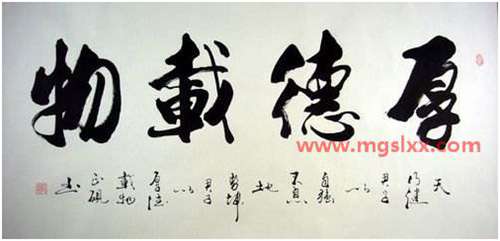 厚德載物
www.mgslxx.com
天
行健
君子
以
自強
不息
地
勢坤
君子
以
厚德
載物
書